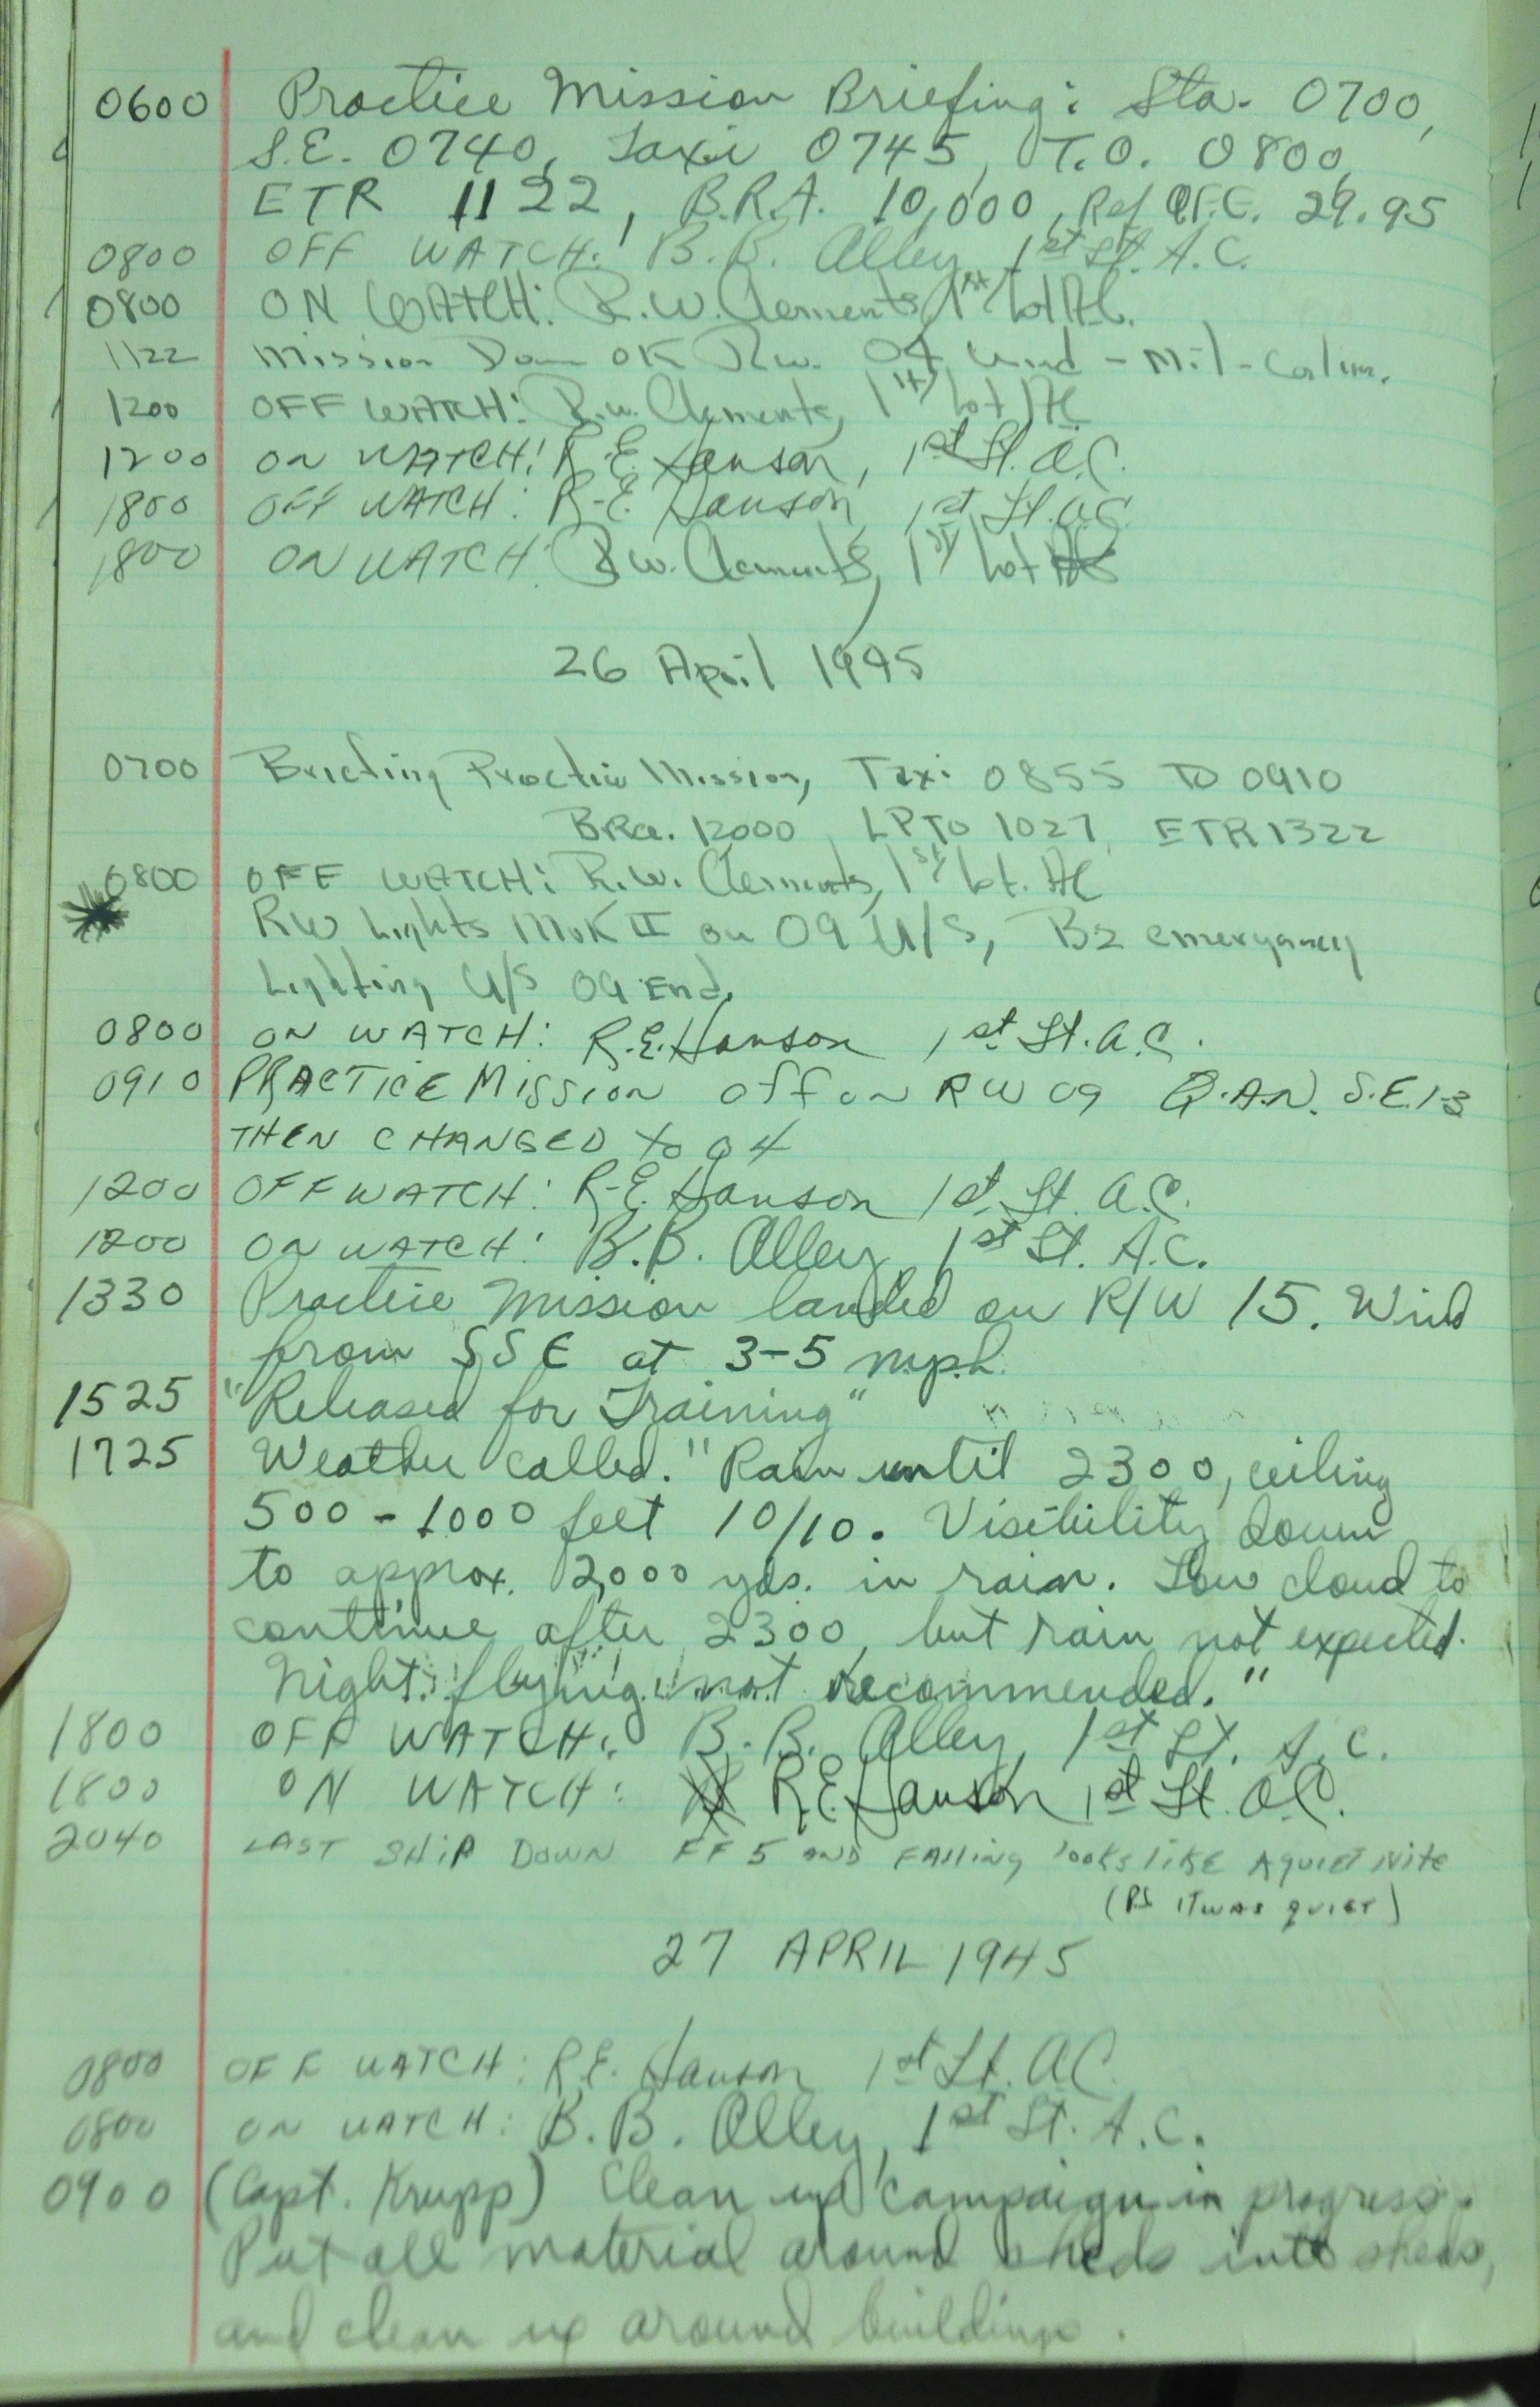 0600 Practice Mission Briefing: Sta. 0700,
S.E. 0740, Taxi 0745, T.O. 0800,
ETR 1122, B.R.A. 10,000, Ref Q.F.E. 29.95
0800 OFF WATCH: B.B. Alley, 1st Lt. A.C.
0800 ON WATCH: R.W. Clements, 1st Lt AC.
1122 Mission Down OK Rw. 04 Wind - Mil - Calm.
1200 OFF WATCH: R.W. Clements, 1st Lt AC
1200 ON WATCH: R.E. Hanson, 1st Lt. A.C.
1800 OFF WATCH: R.E. Hanson 1st Lt. A.C.
1800 ON WATCH: R.W. Clements, 1st Lt AC
26 April 1945
0700 Briefing Practice Mission, Taxi 0855 TO 0910
BRA. 12000, LPTO 1027, ETR 1322
0800 OFF WATCH: R.W. Clements, 1st Lt. AC
RW Lights Mok II on 09 U/S, B2 emergancy
Lighting U/S 09 End.
0800 ON WATCH: R.E. Hanson 1st Lt. A.C.
0910 PRACTICE MISSION Off on RW 09 Q.A.N. S.E. 1-3
THEN CHANGED to 04
1200 OFF WATCH: R.E. Hanson 1st Lt. A.C.
1200 ON WATCH: B.B. Alley, 1st Lt. A.C.
1330 Practice Mission landed on R/W 15. Wind
from SSE at 3-5 mph.
1525 "Released for Training"
1725 Weather called. "Rain until 2300, ceiling
500 - 1000 feet 10/10. Visibility down
to approx. 2,000 yds. in rain. Low cloud to
continue after 2300, but rain not expected.
Night flying not recommended."
1800 OFF WATCH: B.B. Alley, 1st Lt. A.C.
1800 ON WATCH: R.E. Hanson 1st Lt. A.C.
2040 LAST SHIP DOWN FF 5 AND FAlliNg looks likE A quiET NiTe
(P.S IT WAS QUIET)
27 APRIL 1945
0800 OFF WATCH: R.E. Hanson 1st Lt. A.C.
0800 ON WATCH: B.B. Alley, 1st Lt. A.C.
0900 (Capt. Krupp) Clean up campaign in progress.
Put all material around sheds into sheds,
and clean up around buildings.